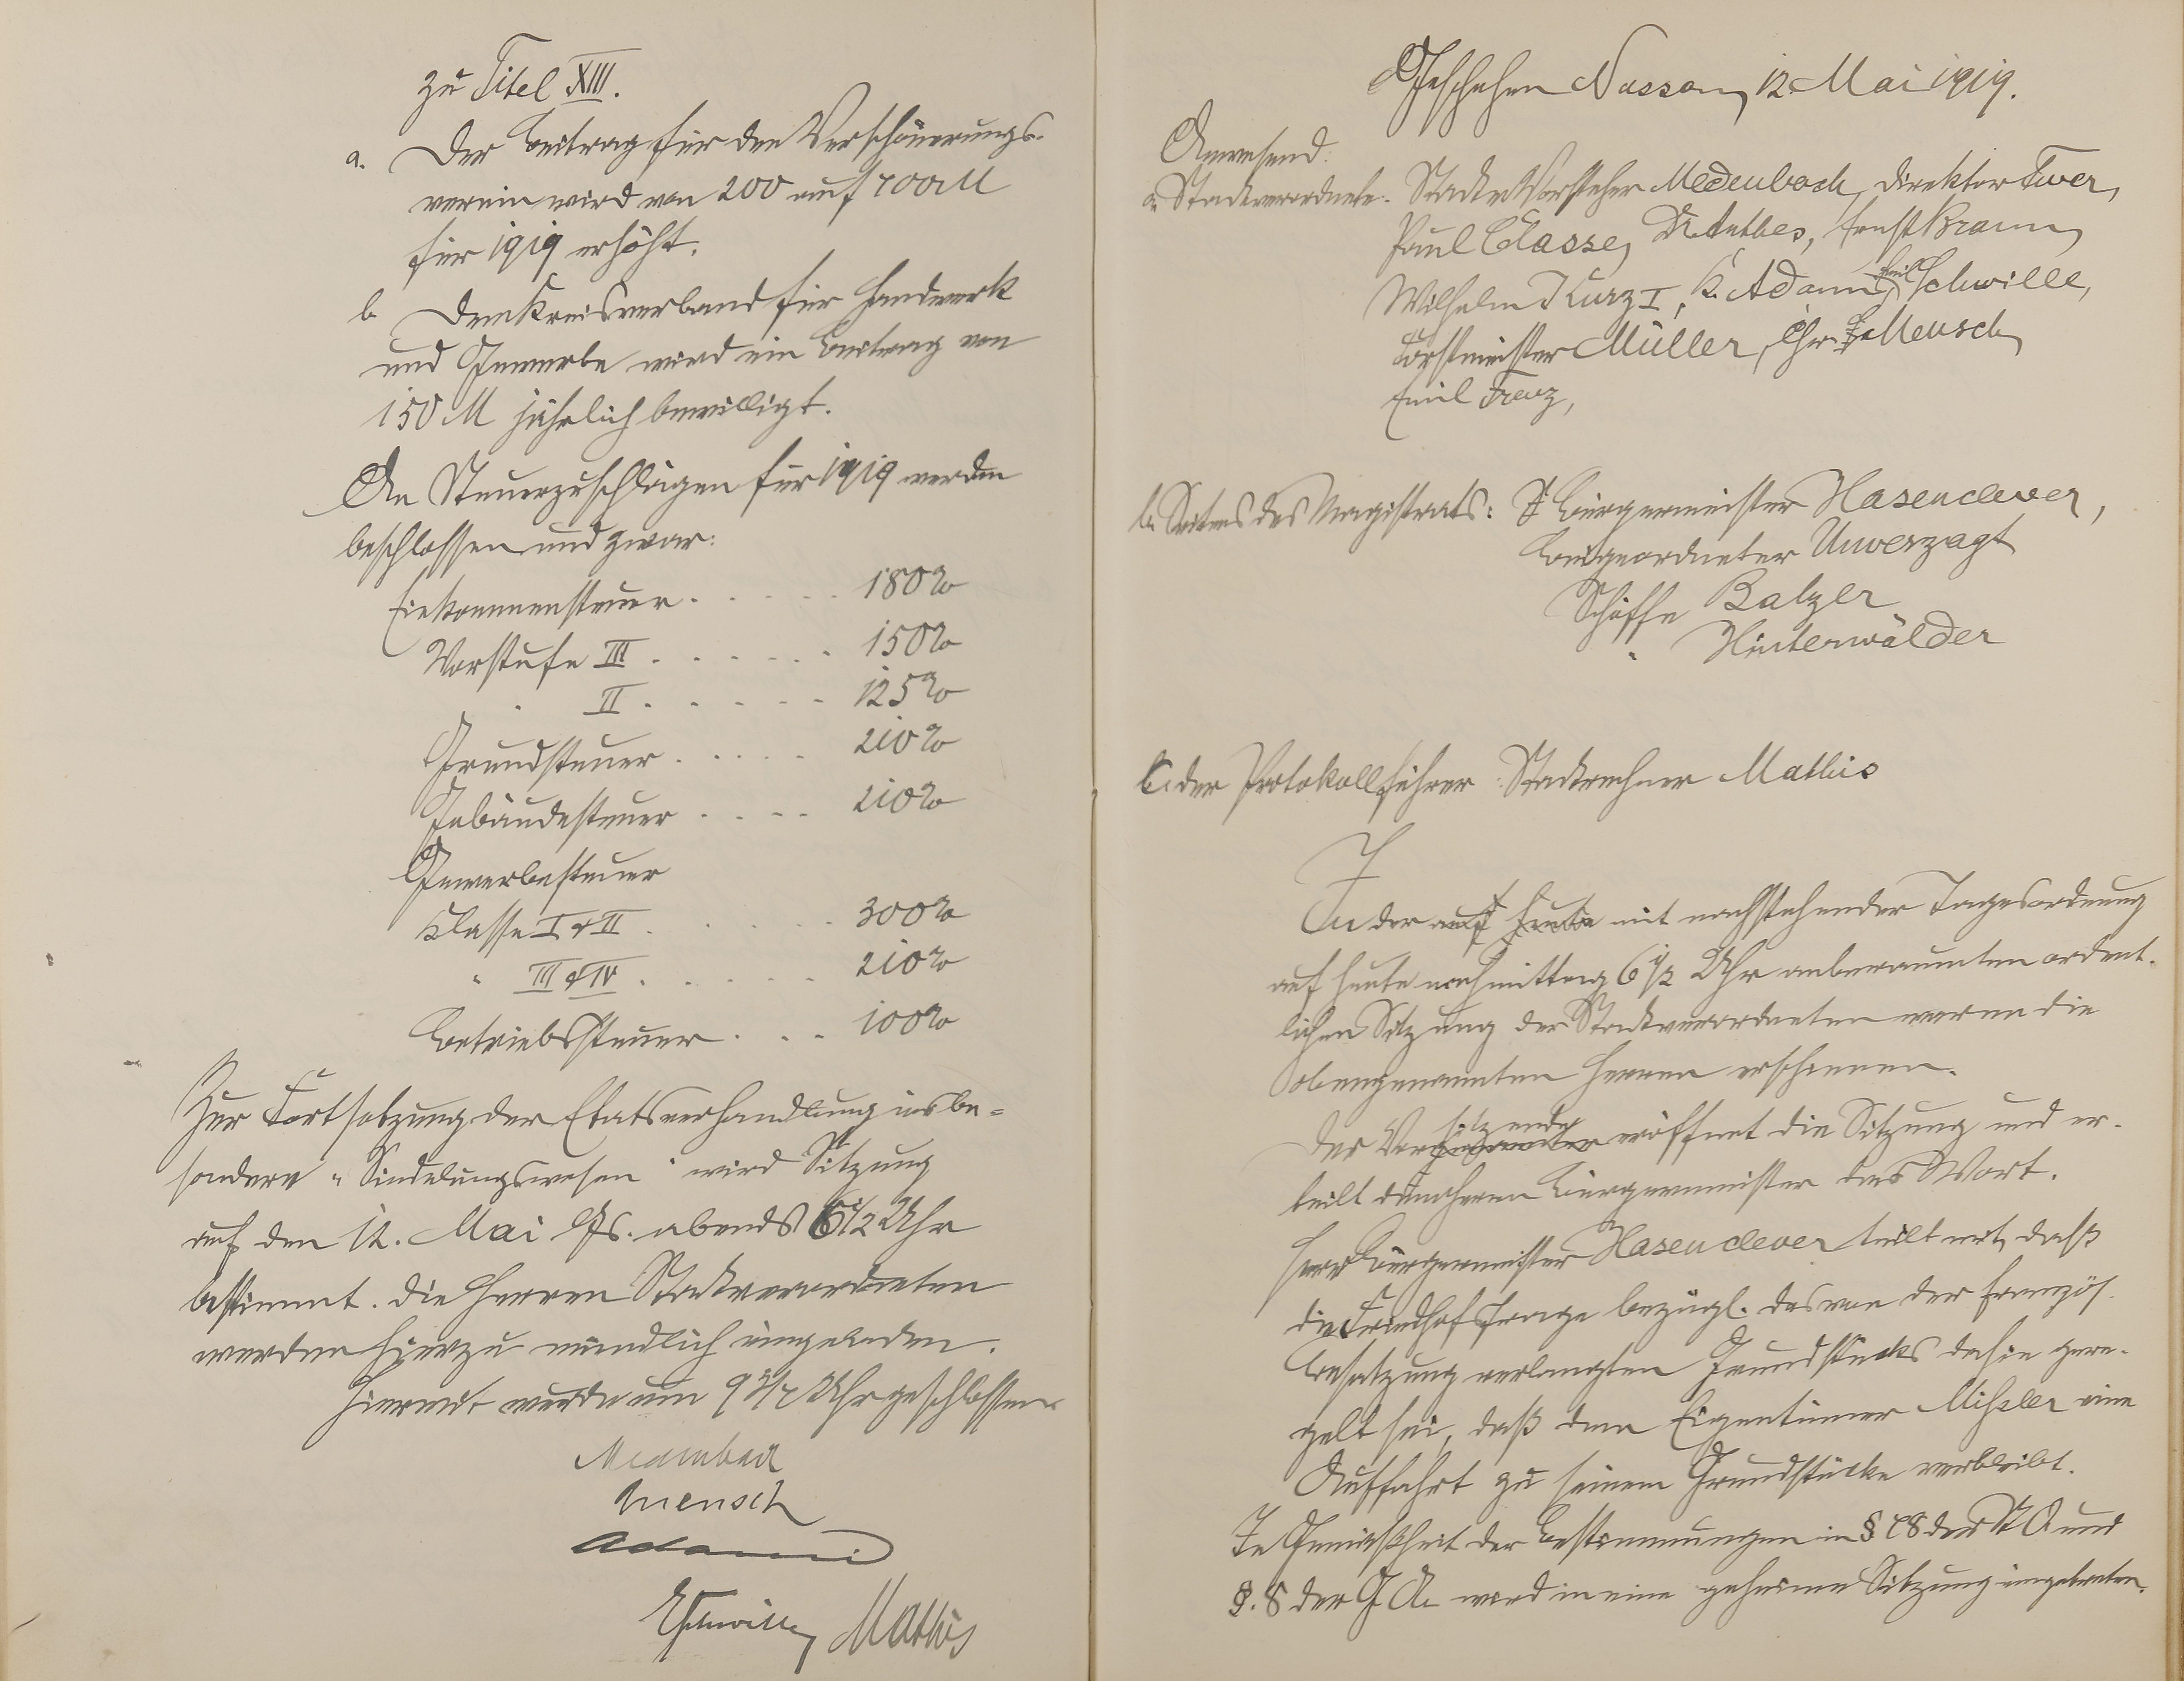 zu Titel XIII.
a. Der Beitrag für den Verschönerungs-
verein wird von 200 auf 400 M
für 1919 erhöht.
b. Dem Kreisverband für Handwerk
und Gewerbe wird ein Beitrag von
150 M jährlich bewilligt.
An Steuerzuschlägen für 1919 werden
beschlossen und zwar:
Einkommensteuer . . . . . 180%
Vorstufe III . . . . . . 150%
" II . . . . . . 125%
Grundsteuer . . . . . 210%
Gebäudesteuer . . . . 210%
Gewerbesteuer
Classe I & II . . . . . 300%
" III & IV . . . . . 210%
Betriebssteuer . . . 100%
Zur Fortsetzung der Etatsverhandlung insbe-
sondere "Siedelungswesen" wird Sitzung
auf den 12. Mai ds. Js. abends 6 1/2 Uhr
bestimmt. Die Herren Stadtverordneten
werden hierzu mündlich eingeladen.
Hiermit wurde um 9 3/4 Uhr geschlossen
Medenbach
Mensch
Adami
ESchwille, Mathis
Geschehen Nassau, 12. Mai 1919.
Anwesend:
a. Stadtverordnete. Stadtv. Vorsteher Medenbach, Direktor
Paul Classe, Dr. Anthes, Ernst Bramm,
Wilhelm Kurz I, K. Adami, Emil Schwille,
Forstmeister Müller, Chr. Mensch,
Emil Franz,
b. Seitens des Magistrats: Bürgermeister Hasenclever,
Beigeordneter Unverzagt
Schöffe Balzer
" Hinterwälder
c. der Protokollführer Stadtrechner Mathis
In der auf heute mit nachstehender Tagesordnung
auf heute nachmittag 6 1/2 Uhr anberaumten ordent-
lichen Sitzung der Stadtverordneten waren die
obengenannten Herren erschienen.
Der Vorsitzende eröffnet die Sitzung und er-
teilt dem Herrn Bürgermeister das Wort.
Herr Bürgermeister Hasenclever teilt mit, daß
die Friedhofsfrage bezügl. des von der französ.
Besatzung verlangten Grundstücks dahin gere-
gelt sei, daß dem Eigentümer Mihsler eine
Auffahrt zu seinem Grundstücke verbleibt.
In Gemäßheit der Bestimmungen in § 48 der St O und
§. 8 der G. O. wird in eine geheime Sitzung eingetreten.